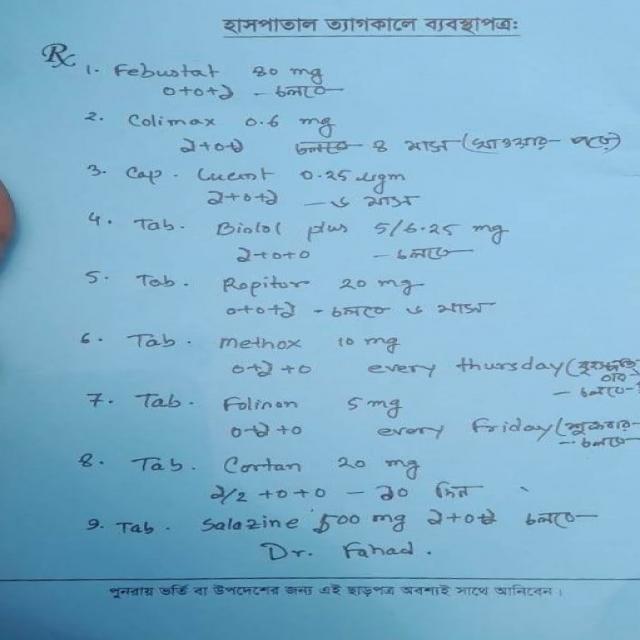 হাসপাতাল ত্যাগকালে ব্যবস্থাপত্র:
Rx
1. Febustat 80 mg
০+০+১ - চলবে
2. Colimax 0.6 mg
১+০+১ চলবে ৪ মাস (খাওয়ার পরে)
3. Cap. Lucent 0.25 ugm
১+০+১ - ৬ মাস
4. Tab. Bislol plus 5/6.25 mg
১+০+০ - চলবে
5. Tab. Ropitor 20 mg
০+০+১ - চলবে ৬ মাস
6. Tab. Methox 10 mg
০+১+০ every thursday (বৃহস্পতি
বার
- চলবে-
7. Tab. Folinon 5 mg
০+১+০ every Friday (শুক্রবার-
- চলবে
8. Tab. Cortan 20 mg
১/২+০+০ - ১০ দিন
9. Tab. Salazine 500 mg ১+০+১ চলবে
Dr. Fahad.
পুনরায় ভর্তি বা উপদেশের জন্য এই ছাড়পত্র অবশ্যই সাথে আনিবেন।